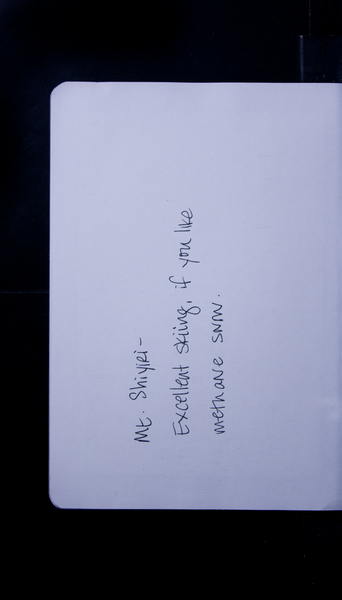 Mt. Shiyiri-
Excellent skiing, if you like
methane snow.